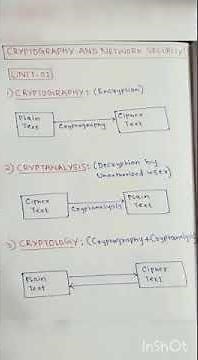 CRYPTOGRAPHY AND NETWORK SECURITY
UNIT-01
1) CRYPTOGRAPHY: (Encryption)
Plain Text
Cryptography
Cipher Text
2) CRYPTANALYSIS: (Decryption by
Unauthorized user)
Cipher Text
Cryptanalysis
Plain Text
3) CRYPTOLOGY: (Cryptography + Cryptanalysis
Plain Text
Cipher Text
InShOt